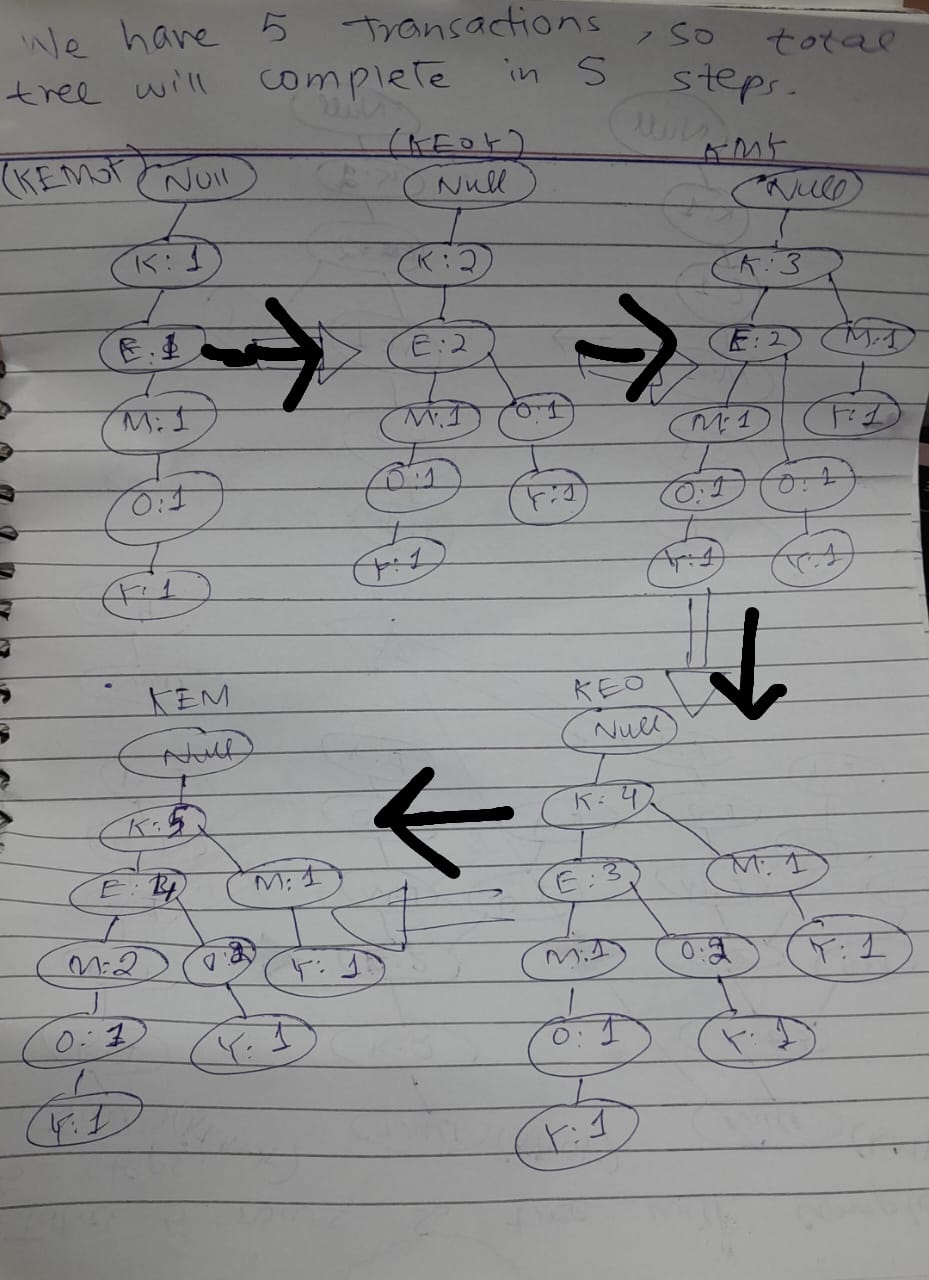 We have 5 Transactions, so total
tree will complete in 5 steps.
(KEMOY)
Null
K:1
E:1
M:1
O:1
Y:1
(KEOY)
Null
K:2
E:2
M:1
O:1
O:1
Y:1
Y:1
KMY
Null
K:3
E:2
M:1
M:1
Y:1
O:1
O:1
Y:1
Y:1
KEO
Null
K:4
E:3
M:1
M:1
O:2
Y:1
O:1
Y:1
Y:1
KEM
Null
K:5
E:4
M:1
M:2
O:2
Y:1
O:1
Y:1
Y:1